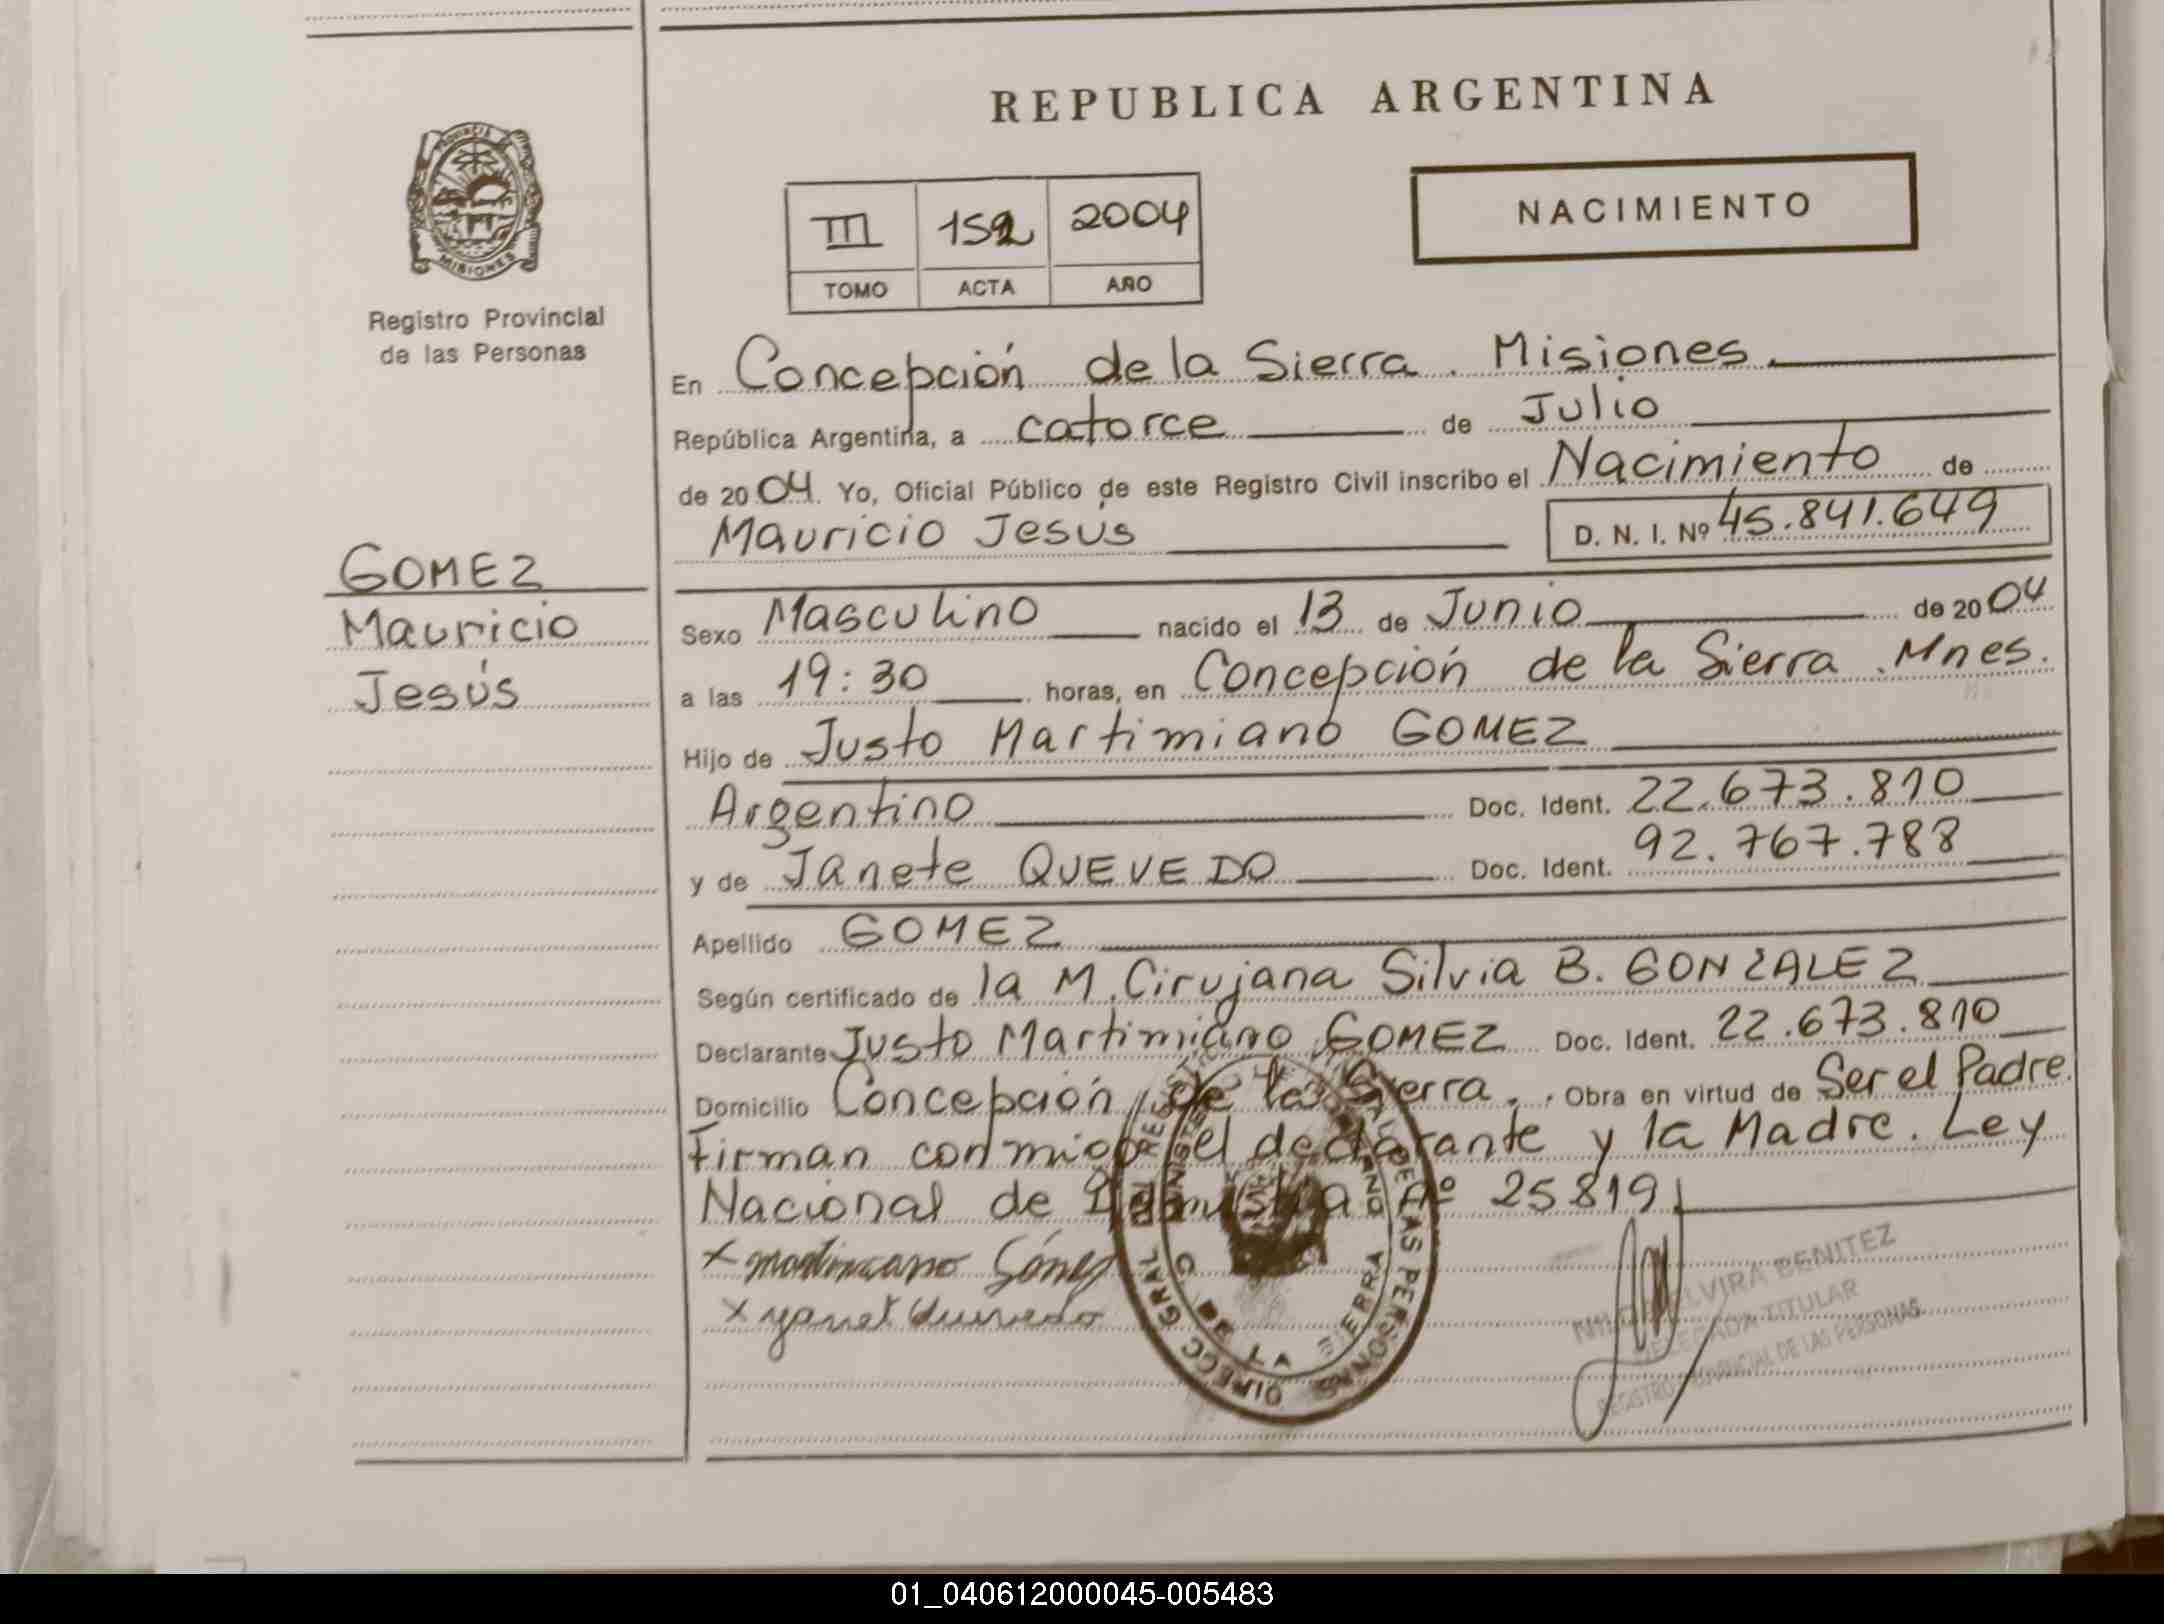 REPUBLICA ARGENTINA
PROVINCIA
MISIONES
Registro Provincial
de las Personas
III 152 2004
TOMO ACTA AÑO
NACIMIENTO
En Concepción de la Sierra. Misiones.
República Argentina, a catorce de Julio
de 2004. Yo, Oficial Público de este Registro Civil inscribo el Nacimiento de
Mauricio Jesús D. N. I. Nº 45.841.649
GOMEZ
Mauricio
Jesús
Sexo Masculino nacido el 13 de Junio de 2004
a las 19:30 horas, en Concepción de la Sierra. Mnes.
Hijo de Justo Martimiano GOMEZ
Argentino Doc. Ident. 22.673.810
y de Janete QUEVEDO Doc. Ident. 92.767.788
Apellido GOMEZ
Según certificado de la M. Cirujana Silvia B. GONZALEZ
Declarante Justo Martimiano GOMEZ Doc. Ident. 22.673.810
Domicilio Concepción de la Sierra. Obra en virtud de Ser el Padre.
Firman conmigo el declarante y la Madre. Ley
Nacional de nº 25819
x martimiano Gómez
x yanet Quevedo
DIRECC GRAL DEL REGISTRO DE LAS PERSONAS
SIERRA
ELVIRA BENITEZ
DELEGADA TITULAR
REGISTRO PROVINCIAL DE LAS PERSONAS
01_040612000045-005483